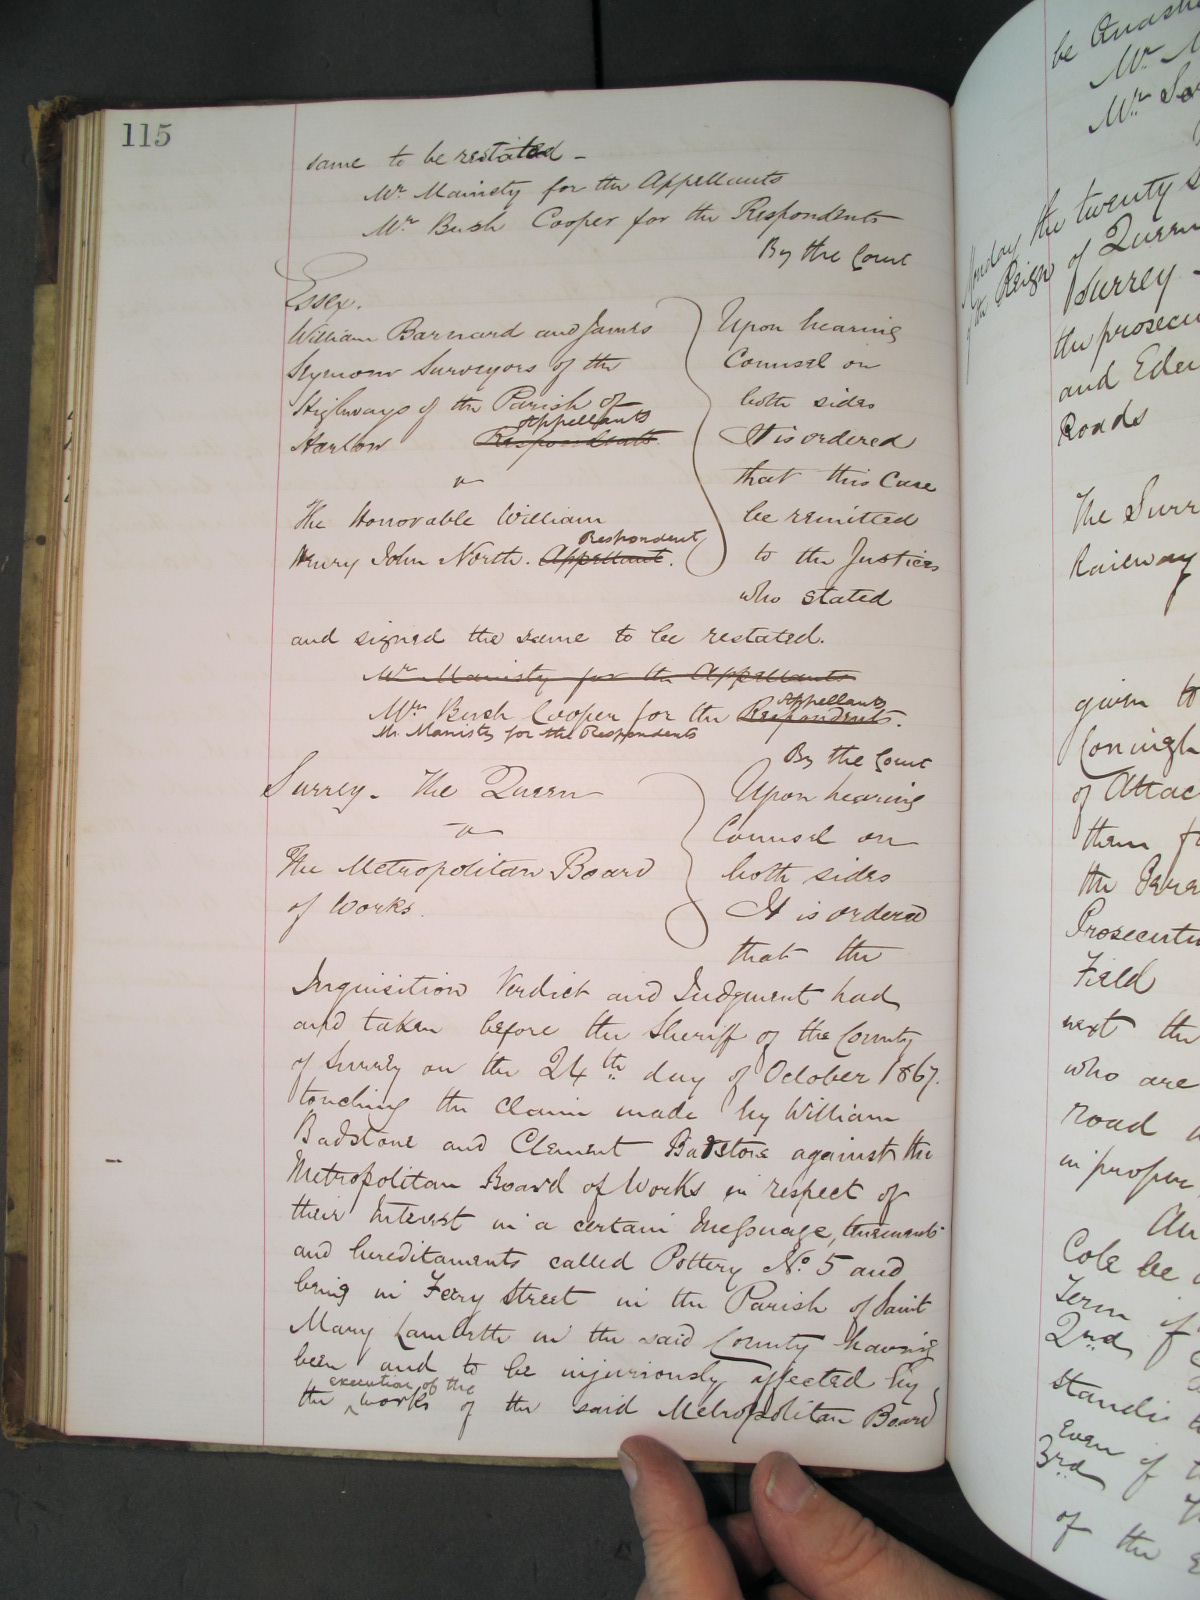 115
same to be restated -
Mr. Manisty for the Appellants
Mr. Bush Cooper for the Respondents
By the Court
Essex.
William Barnard and James
Seymour Surveyors of the
Highways of the Parish of
Appellants
Harlow Respondents
v
The Honorable William
Respondent
Henry John North. Appellant.
Upon hearing
Counsel on
both sides
It is ordered
that this Case
be remitted
to the Justices
who stated
and signed the same to be restated.
Mr. Manisty for the Appellants
Appellants
Mr. Bush Cooper for the Respondents.
Mr. Manisty for the Respondents
By the Court
Surrey. The Queen
v
The Metropolitan Board
of Works.
Upon hearing
Counsel on
both sides
It is ordered
that the
Inquisition Verdict and Judgment had
and taken before the Sheriff of the County
of Surrey on the 24th day of October 1867.
touching the claim made by William
Badstone and Clement Badstone against the
Metropolitan Board of Works in respect of
their Interest in a certain Messuage, tenements
and hereditaments called Pottery No. 5 and
being in Ferry Street in the Parish of Saint
Mary Lambeth in the said County having
been and to be injuriously affected by
execution of the
the works of the said Metropolitan Board
be
Mr.
Mr.
Monday the twenty
the Reign of Queen
Surrey -
the prosecu
and Eden
Roads
The Surr
Railway
given to
of Attac
them
the
Prosecution
Field
next the
who are
road
in proper
Cole be
Term of
2nd
stands
Even of
3rd
of the